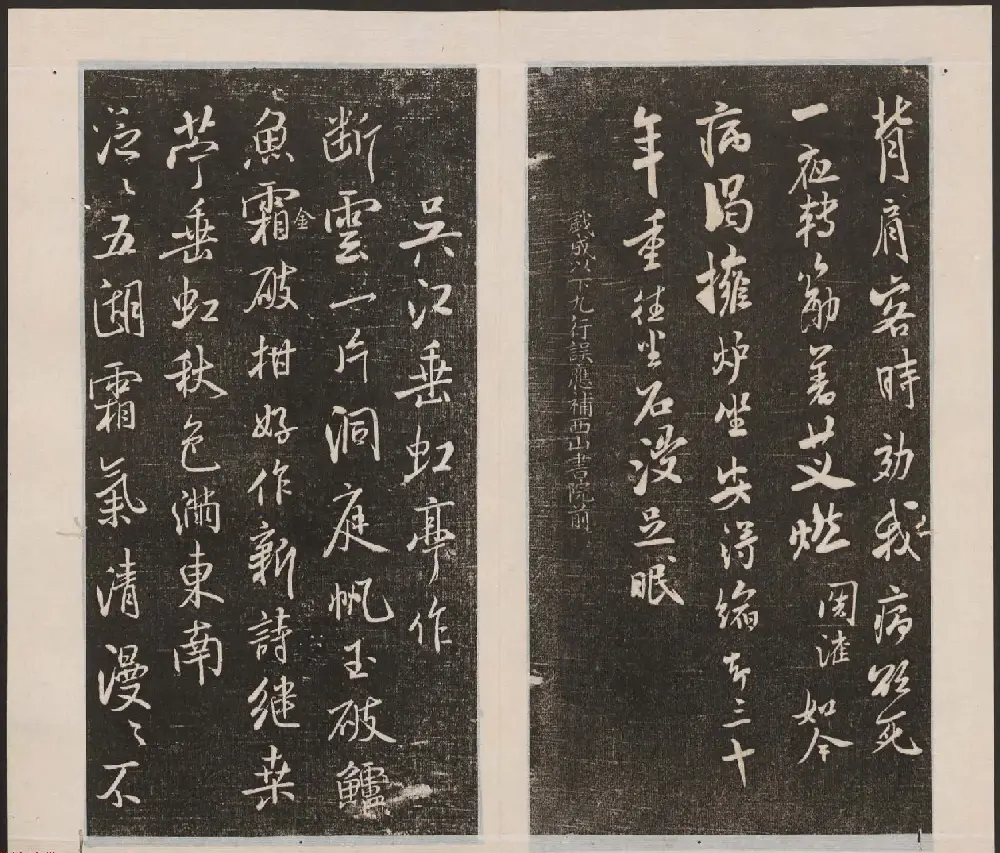 背肩客時効我病欲死
一夜轉筋著艾燃 関淮 如今
病渴擁炉坐安得縮却三十
年重往坐石浸足眠
我成以下九行誤應補西山書院前
吳江垂虹亭作
断雲一片洞庭帆玉破鱸
魚霜金破柑好作新詩継桑
苧垂虹秋色満東南
泛〻五湖霜氣清漫〻不